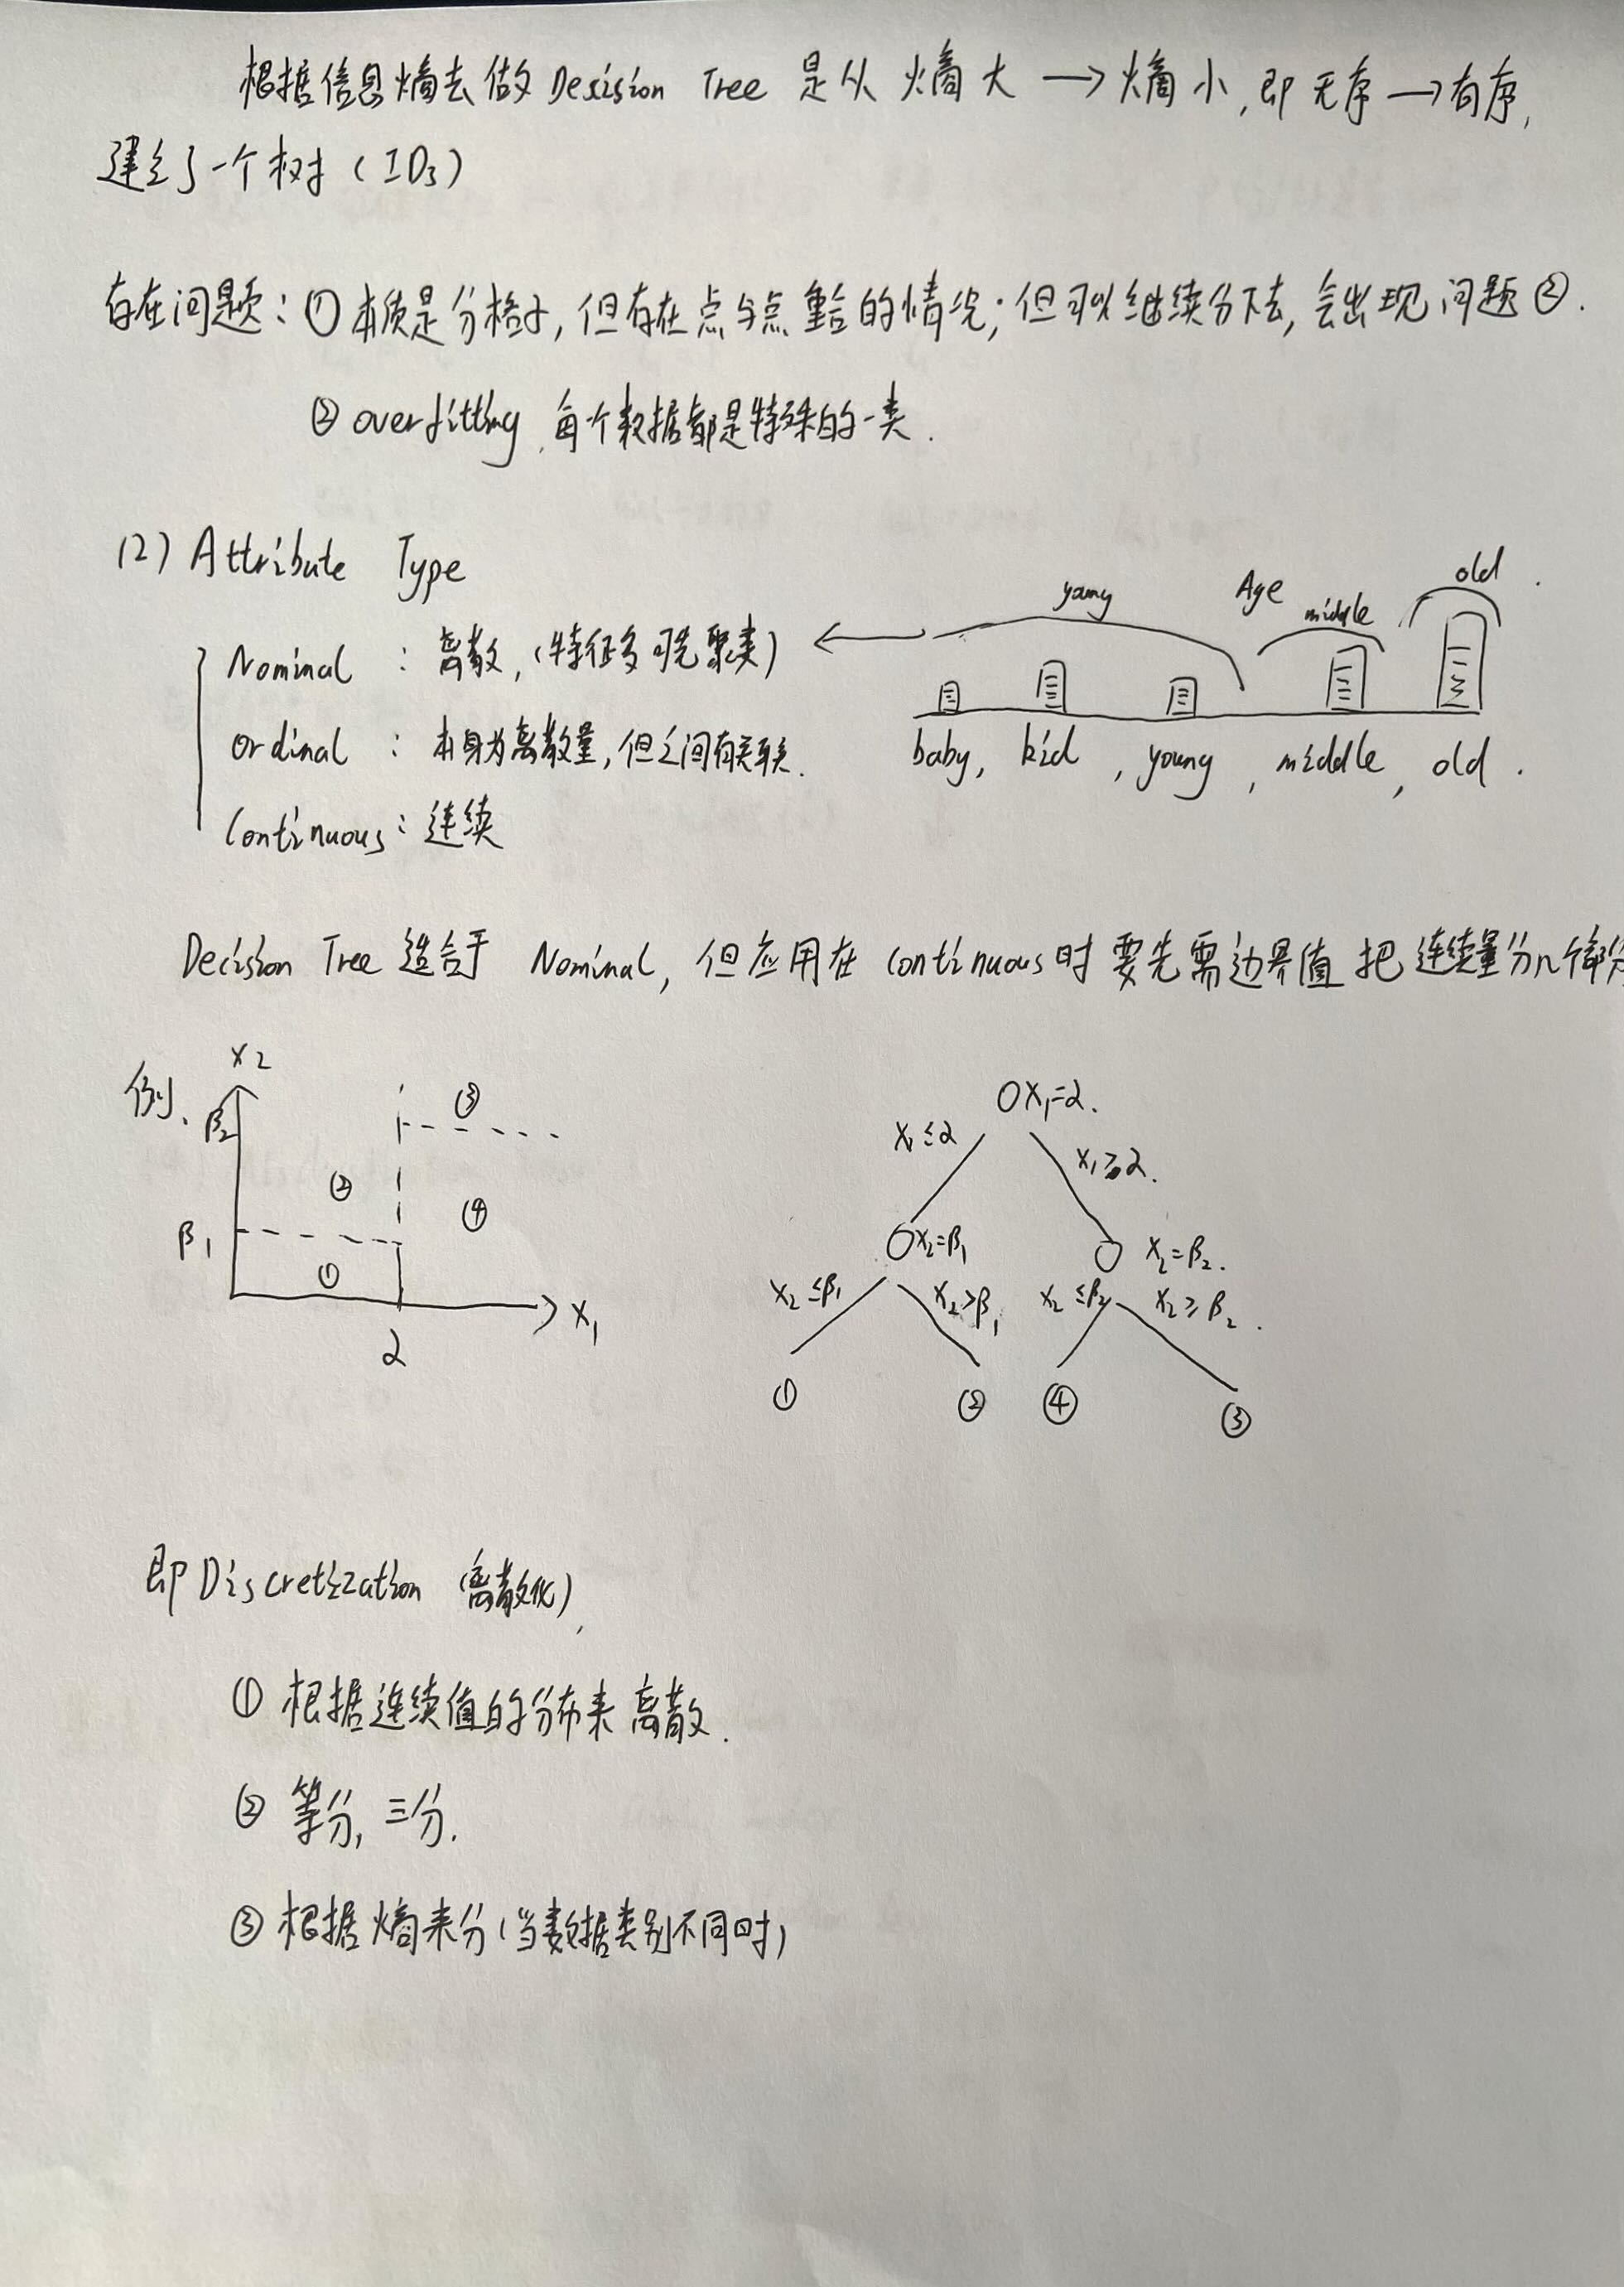 根据信息熵去做 Decision Tree 是从 熵大 → 熵小,即 无序 → 有序,
建立了一个树 (ID3)
存在问题: ① 本质是分格子, 但存在点与点重合的情况; 但可以继续分下去, 会出现问题②.
② overfitting, 每个数据都是特殊的一类.
(2) Attribute Type
young Age middle old
Nominal : 离散, (特征多可先聚类) ←
Ordinal : 本身为离散量, 但之间有关联.
baby, kid, young, middle, old.
Continuous: 连续
Decision Tree 适合于 Nominal, 但应用在 Continuous 时 要先需边界值 把 连续量分n个部分
例.
X2
β2
③
②
④
β1
①
X1
α
X1=α.
X1≤α X1≥α.
X2=β1 X2=β2.
X2≤β1 X2>β1 X2≤β2 X2≥β2.
① ② ④ ③
即 Discretization (离散化),
① 根据连续值的分布来 离散.
② 等分, 三分.
③ 根据 熵来分 (当数据类别不同时)